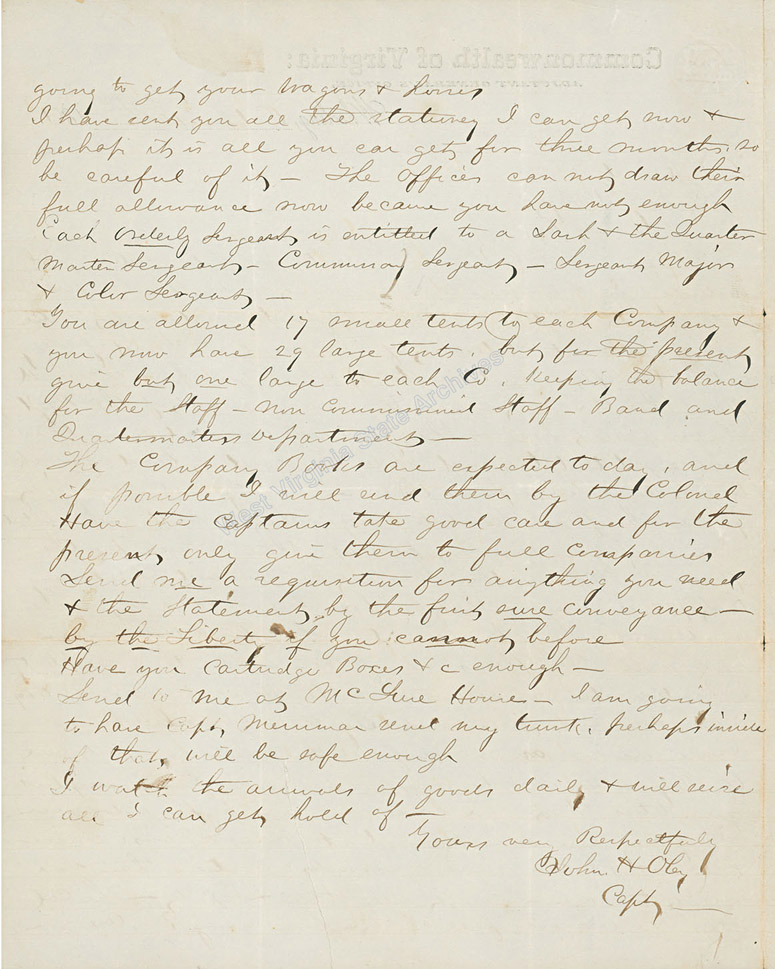 Commonwealth of Virginia:
going to get your Wagons & horses
I have sent you all the stationery I can get now &
perhaps it is all you can get for three months, so
be careful of it — The Officers can not draw their
full allowance now because you have not enough
Each Orderly Sergeant is entitled to a Sash & the Quarter
Master Sergeant — Commissary Sergeant — Sergeant Major
& Color Sergeant —
You are allowed 17 small tents to each Company &
you now have 29 large tents, but for the present
give but one large to each Co, keeping the balance
for the Staff — non Commissioned Staff — Band and
Quartermasters Department —
The Company Books are expected to day, and
if possible I will send them by the Colonel
Have the Captains take good care and for the
present, only give them to full Companies
Send me a requisition for anything you need
& the Statement, by the first sure conveyance —
by the Liberty if you cannot before
Have you Cartridge Boxes &c enough —
Send to me at McLure House — I am going
to have Capt, Merriman send my trunk, perhaps inside
of that, will be safe enough
I watch the arrivals of goods daily & will seize
all I can get hold of —
Yours very Respectfully
John H Oley
Capt —
West Virginia State Archives